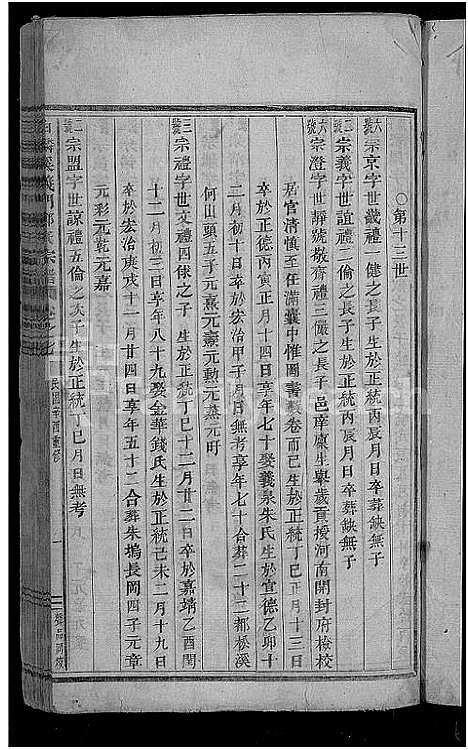 ○第十三世
六號宗京字世畿禮一健之長子生於正統丙辰月日卒葬缺無子
二號宗義字世誼禮二倫之長子生於正統丙辰月日卒葬缺無子
六號宗澄字世靜號敬齋禮三儼之長子邑庠廩生舉歲貢授河南開封府檢校
居官清慎至任滿囊中惟圖書數卷而已生於正統丙辰十月十三日
卒於正德丙寅正月十四日享年七十娶義泉朱氏生於宣德乙卯十
二月初十日卒於宏治甲子月日無考享年七十合葬二十三都松溪
何山頭五子元熹元憲元勳元蒸元時
三號宗禮字世文禮四俅之子生於正統丁巳十二月廿二日卒於嘉靖乙酉閏
十二月初三日享年八十九娶金華錢氏生於正統己未二月十九日
卒於宏治庚戌十一月廿四日享年五十二合葬朱塢長岡四子元章
元彩元乾元嘉
二號宗盟字世諒禮五倫之次子生於正統丁巳月日無考
白麟溪義門鄭氏宗譜 卷之七 民國辛酉重修